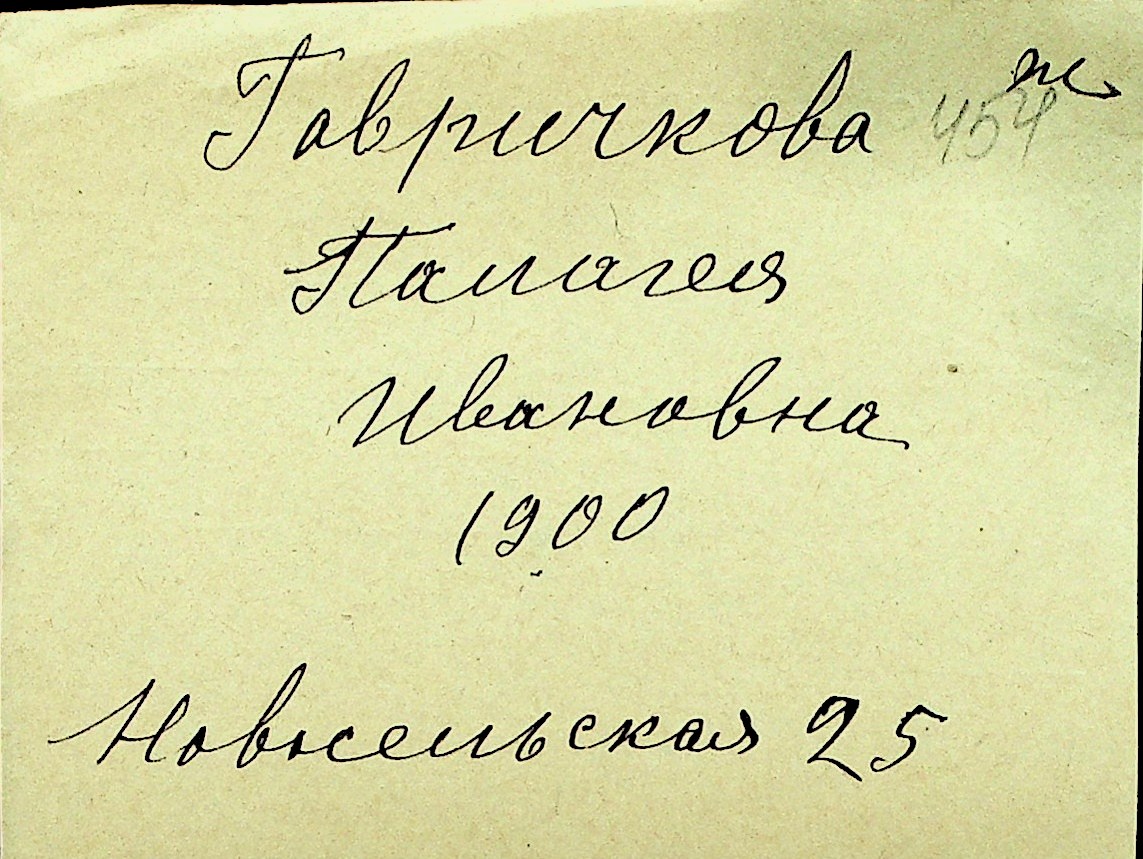 Гавричкова 454 ж
Палагея
Ивановна
1900
Новосельская 25